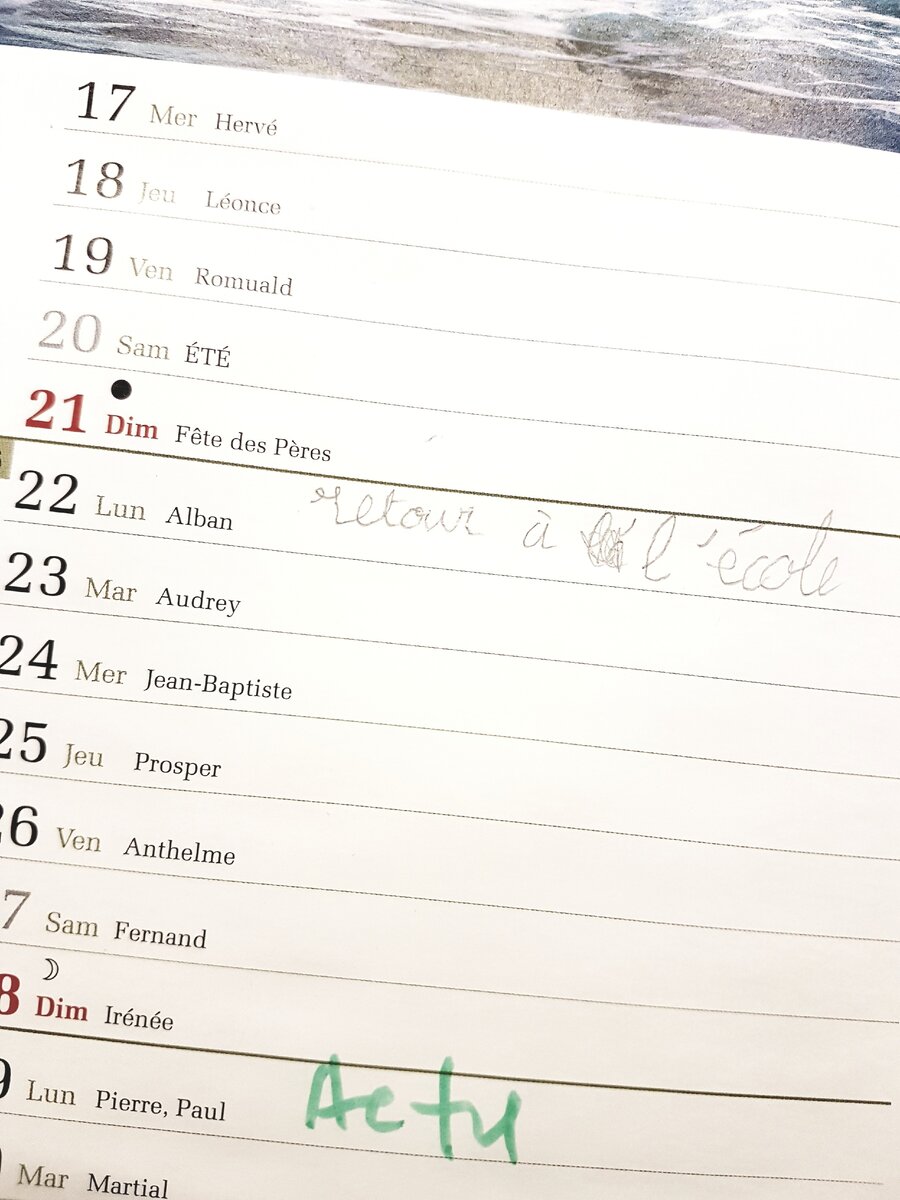 17 Mer Hervé
18 Jeu Léonce
19 Ven Romuald
20 Sam ÉTÉ
21 Dim Fête des Pères
22 Lun Alban retour à l'école
23 Mar Audrey
24 Mer Jean-Baptiste
25 Jeu Prosper
26 Ven Anthelme
7 Sam Fernand
8 Dim Irénée
9 Lun Pierre, Paul Actu
Mar Martial